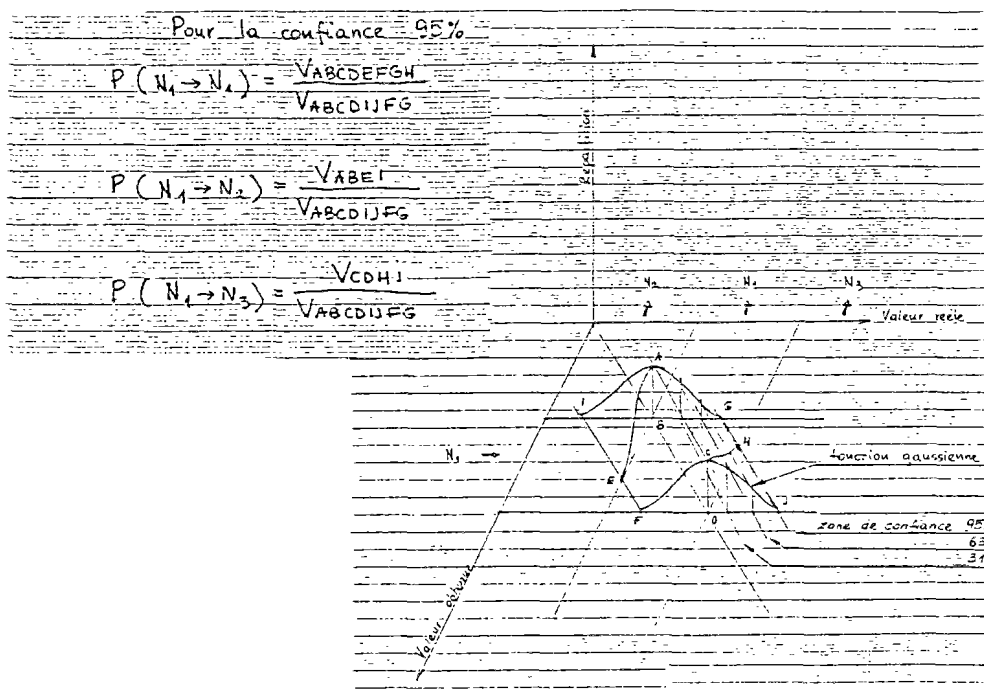 Pour la confiance 95%
P ( N₁ → N₁ ) = VABCDEFGH / VABCDIJFG
P ( N₁ → N₂ ) = VABEI / VABCDIJFG
P ( N₁ → N₃ ) = VCDHJ / VABCDIJFG
Répartition
N₂ N₁ N₃
Valeur réelle
A
I
G
B
H
N₁ →
C
fonction gaussienne
E
J
F
D
zone de confiance 95
63
31
Valeur obtenue